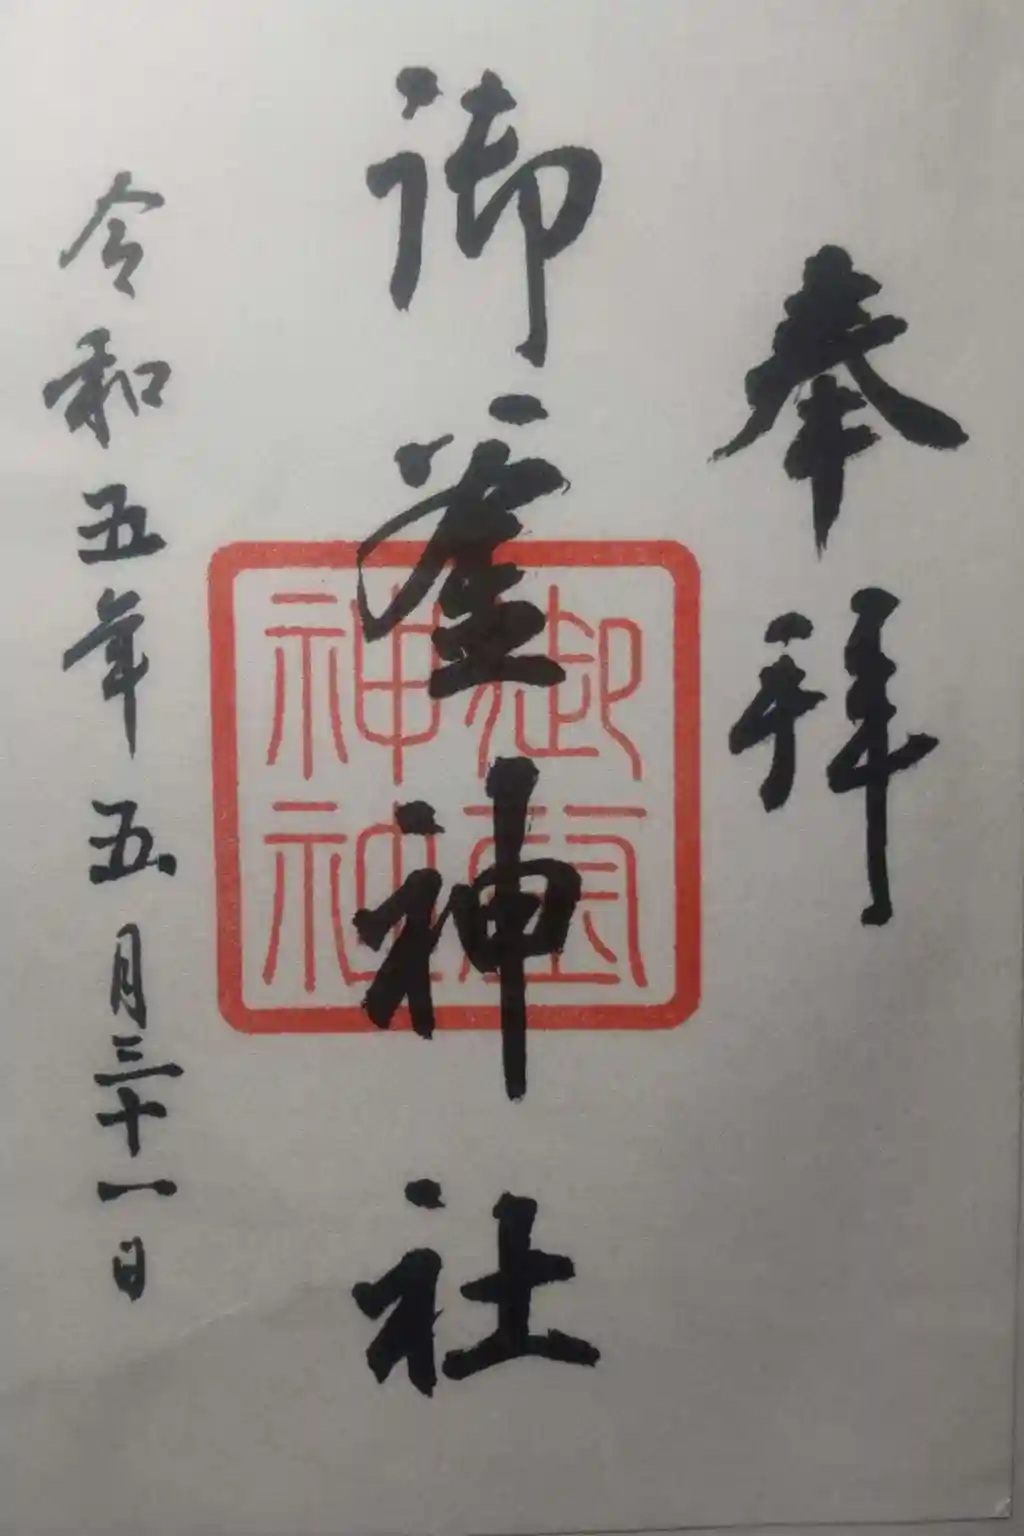 奉拝
御釜神社
御釜神社
令和五年五月三十一日